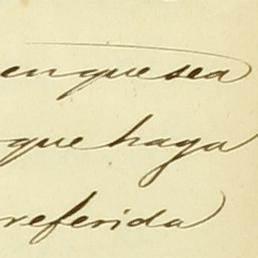 en que sea
que haga
referida